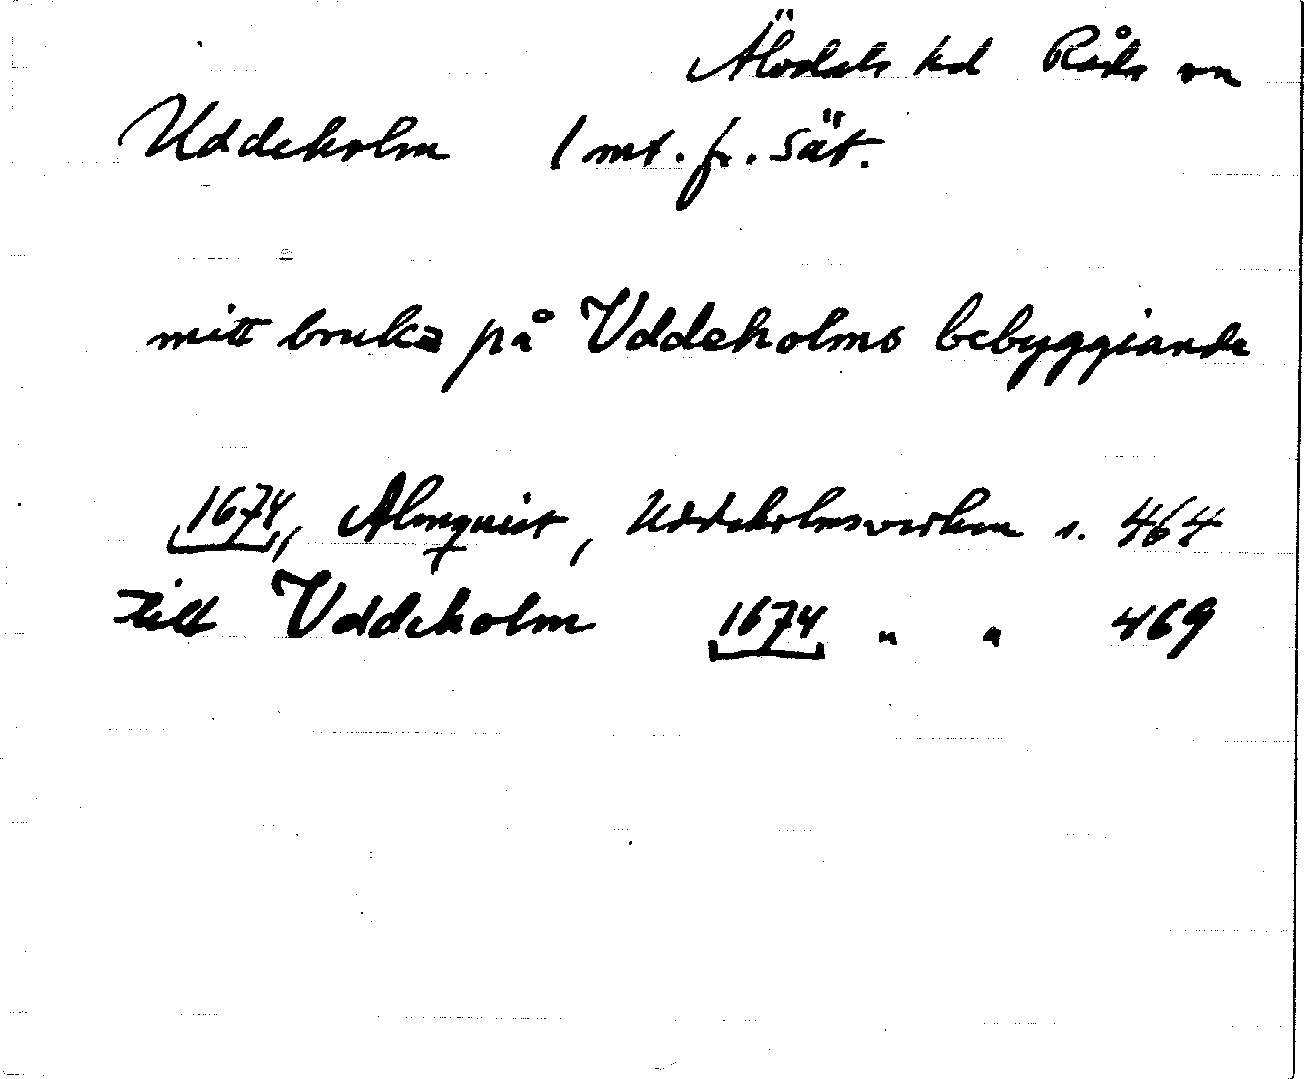 Älvdals hd Råda sn
Uddeholm 1 mt. fr. sät.
mitt bruks på Uddeholms bebyggiande
1674, Almquist, Uddeholmsverken s. 464
till Uddeholm 1674 " " 469